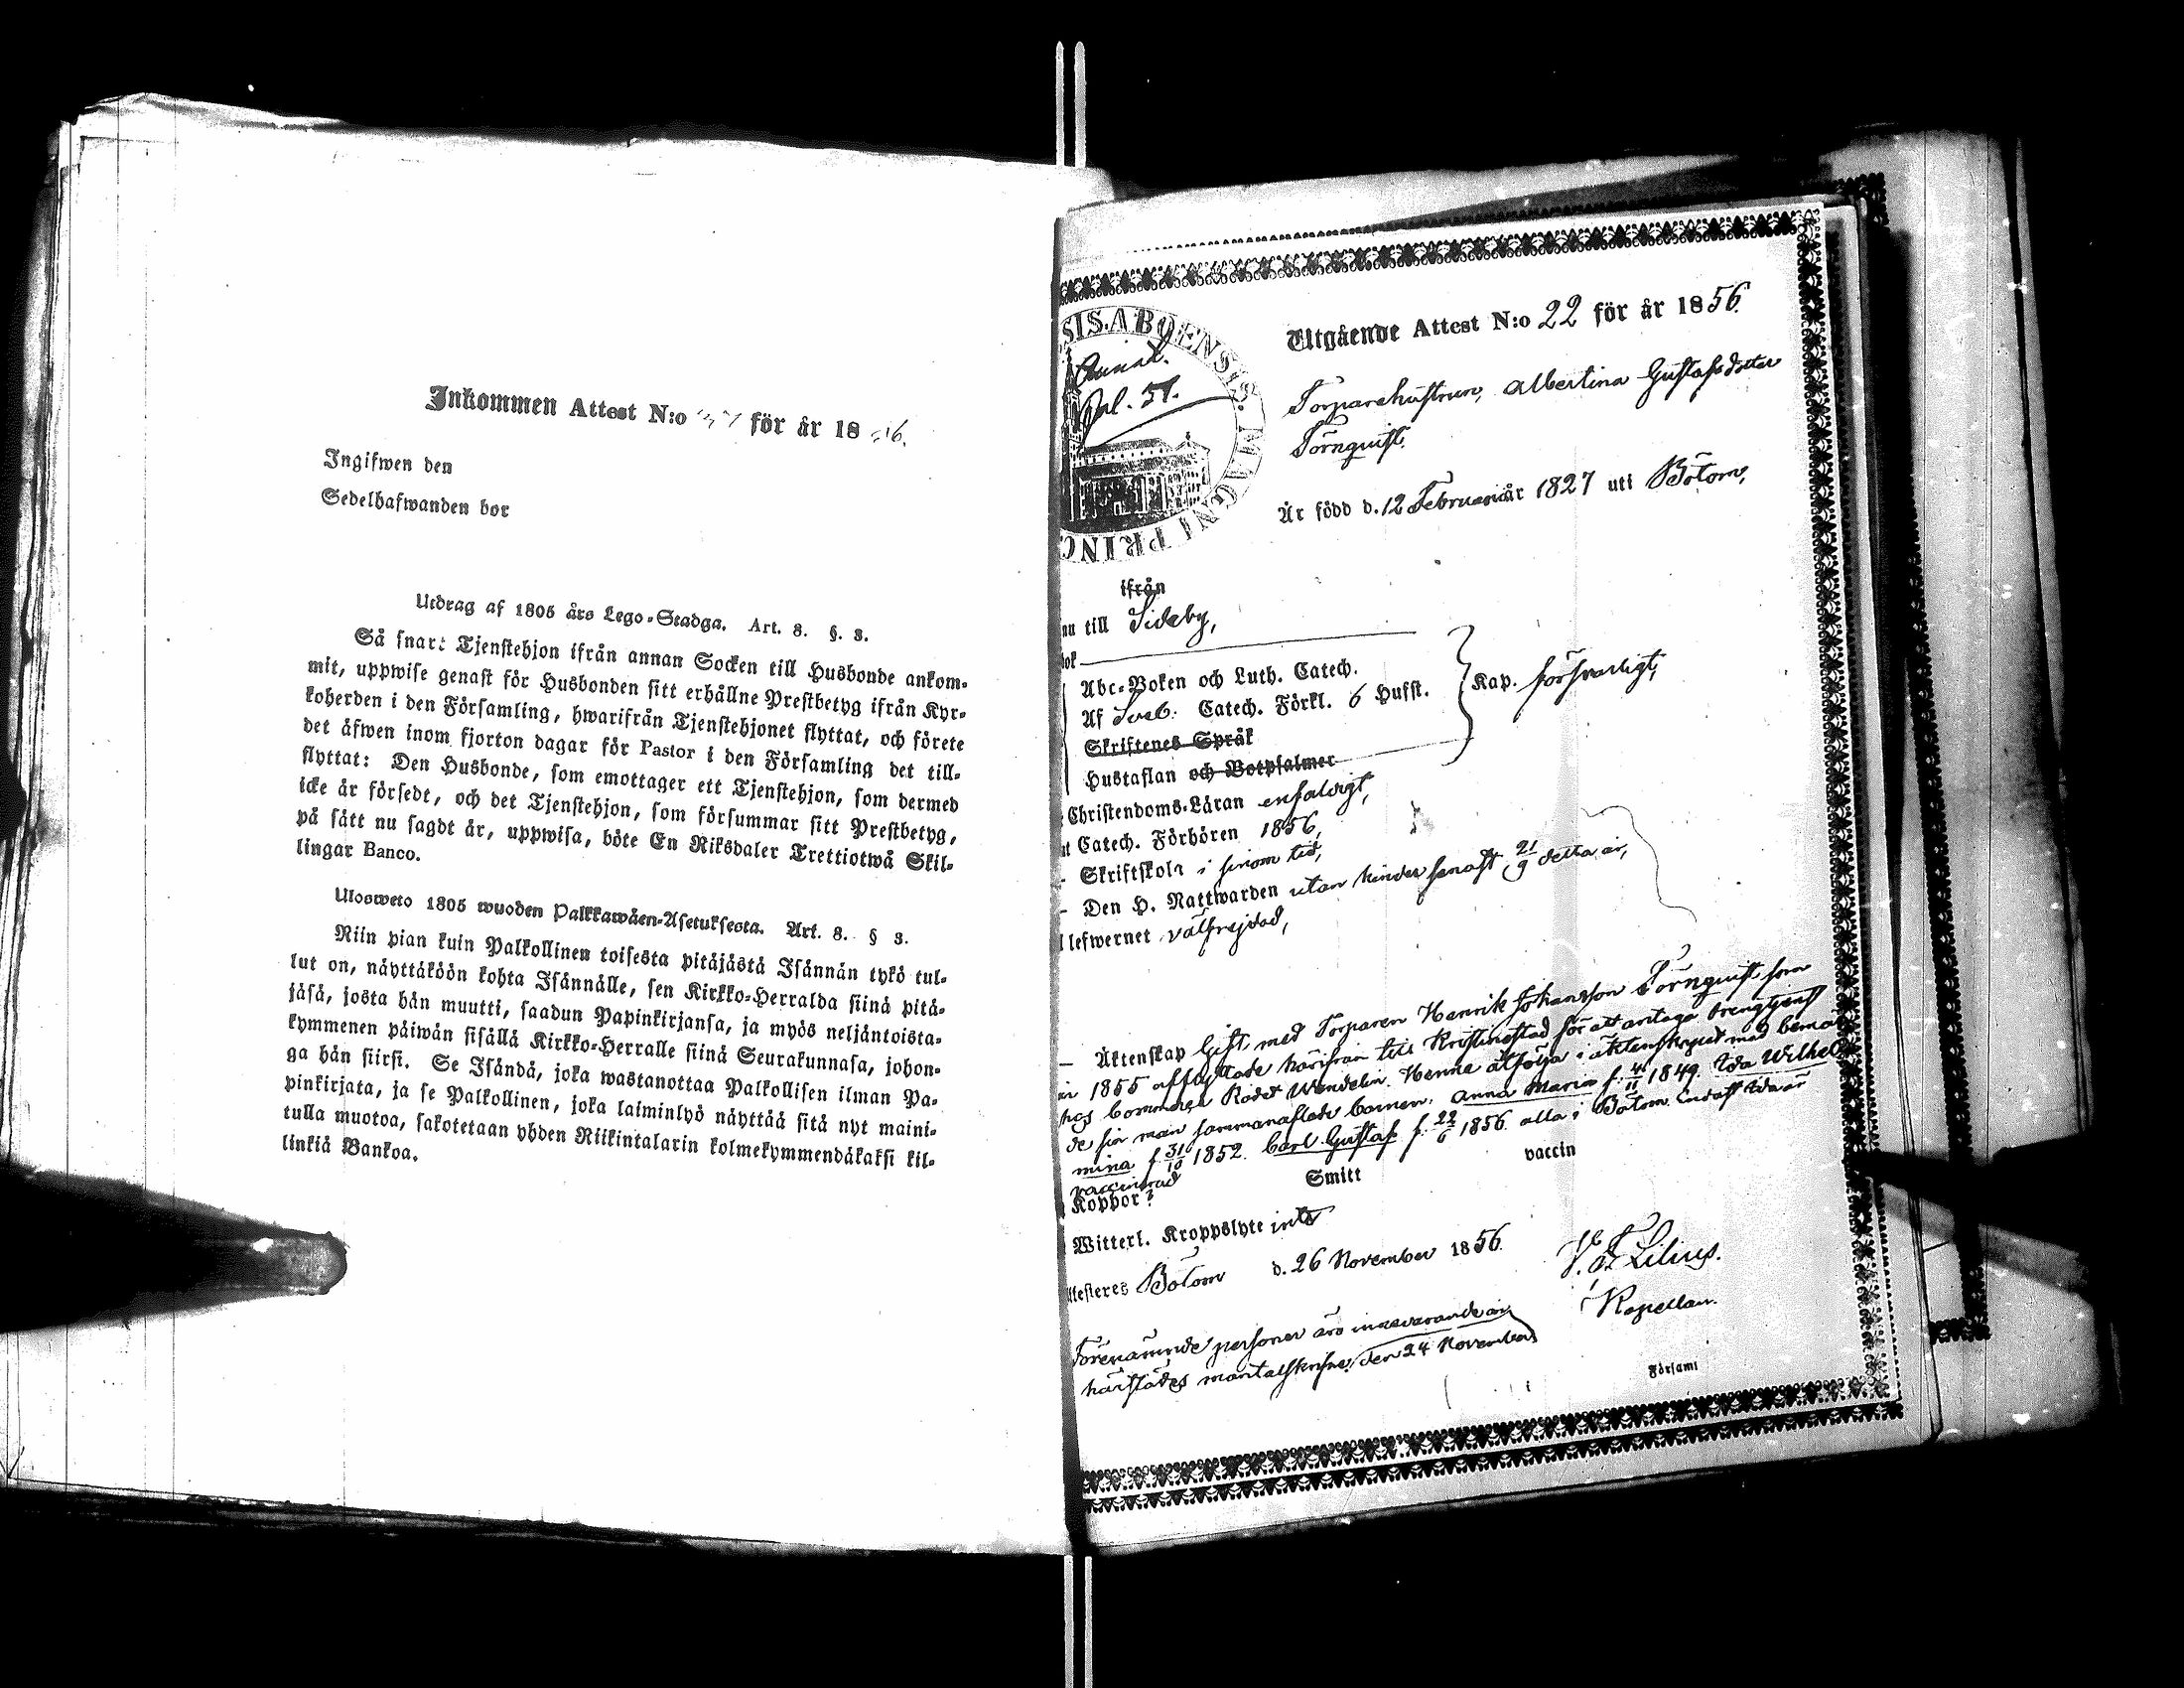 Inkommen Attest N:o för år 1856.
Ingifwen den
Sedelhafwanden bor
Utdrag af 1805 års Lego-Stadga. Art. 8. §. 3.
Så snart Tjenstehjon ifrån annan Socken till Husbonde ankom-
mit, uppwise genast för Husbonden sitt erhållne Prestbetyg ifrån Kyr-
koherden i den Församling, hwarifrån Tjenstehjonet flyttat, och förete
det äfwen inom fjorton dagar för Pastor i den Församling det till-
flyttat: Den Husbonde, som emottager ett Tjenstehjon, som dermed
icke är försedt, och det Tjenstehjon, som försummar sitt Prestbetyg,
på sätt nu sagdt är, uppwisa, böte En Riksdaler Trettiotwå Skil-
lingar Banco.
Ulosweto 1805 wuoden Palkkawäen-Asetuksesta. Art. 8. § 3.
Niin pian kuin Palkollinen toisesta pitäjästä Isännän tykö tul-
lut on, näyttäköön kohta Isännälle, sen Kirkko-Herralda siinä pitä-
jäsä, josta hän muutti, saadun Papinkirjansa, ja myös neljäntoista-
kymmenen päiwän sisällä Kirkko-Herralle siinä Seurakunnasa, johon-
ga hän siirsi. Se Isändä, joka wastanottaa Palkollisen ilman Pa-
pinkirjata, ja se Palkollinen, joka laiminlyö näyttää sitä nyt maini-
tulla muotoa, sakotetaan yhden Riikintalarin kolmekymmendäkaksi kil-
linkiä Bankoa.
SIS.ABOENSIS.MAGNI PRINC
pal. 51.
Utgående Attest N:o 22 för år 1856.
Torparehustrun, Albertina Gustafsdotter
Törnquist.
Är född d. 12 Februarii år 1827 uti Bötom,
ifrån
nu till Sideby,
bok
Abc-Boken och Luth. Catech.
Af Sveb. Catech. Förkl. 6 Hufst. Kap. försvarligt,
Skriftenes Språk
Hustaflan och Botpsalmer
Christendoms-Läran enfaldigt,
Catech. Förhören 1856,
- Skriftskola i sinom tid,
- Den H. Nattwarden utan hinder senast 21/9 detta år,
lefwernet välfrejdad,
- Äktenskap Gift med Torparen Henrik Johansson Törnquist som
år 1855 afflyttade härifrån till Kristinestad för att antaga drengtjenst
hos Commerce Rådet Wendelin. Henne åtfölja i äktenskapet med bemäl-
de sin man sammanaflade barnen: Anna Maria f. 4/11 1849. Ida Wilhel-
mina f. 31/10 1852. Carl Gustaf f. 22/6 1856 alla i Bötom. Endast Ida är
vaccinerad
Koppor? Smitt vaccin
Witterl. Kroppslyte inte
ttesteres Bötom d. 26 November 1856.
Lilius.
Kapellan.
Förenämnde personer äro innevarande år
härstädes mantalskrifne, den 24 November
Församl